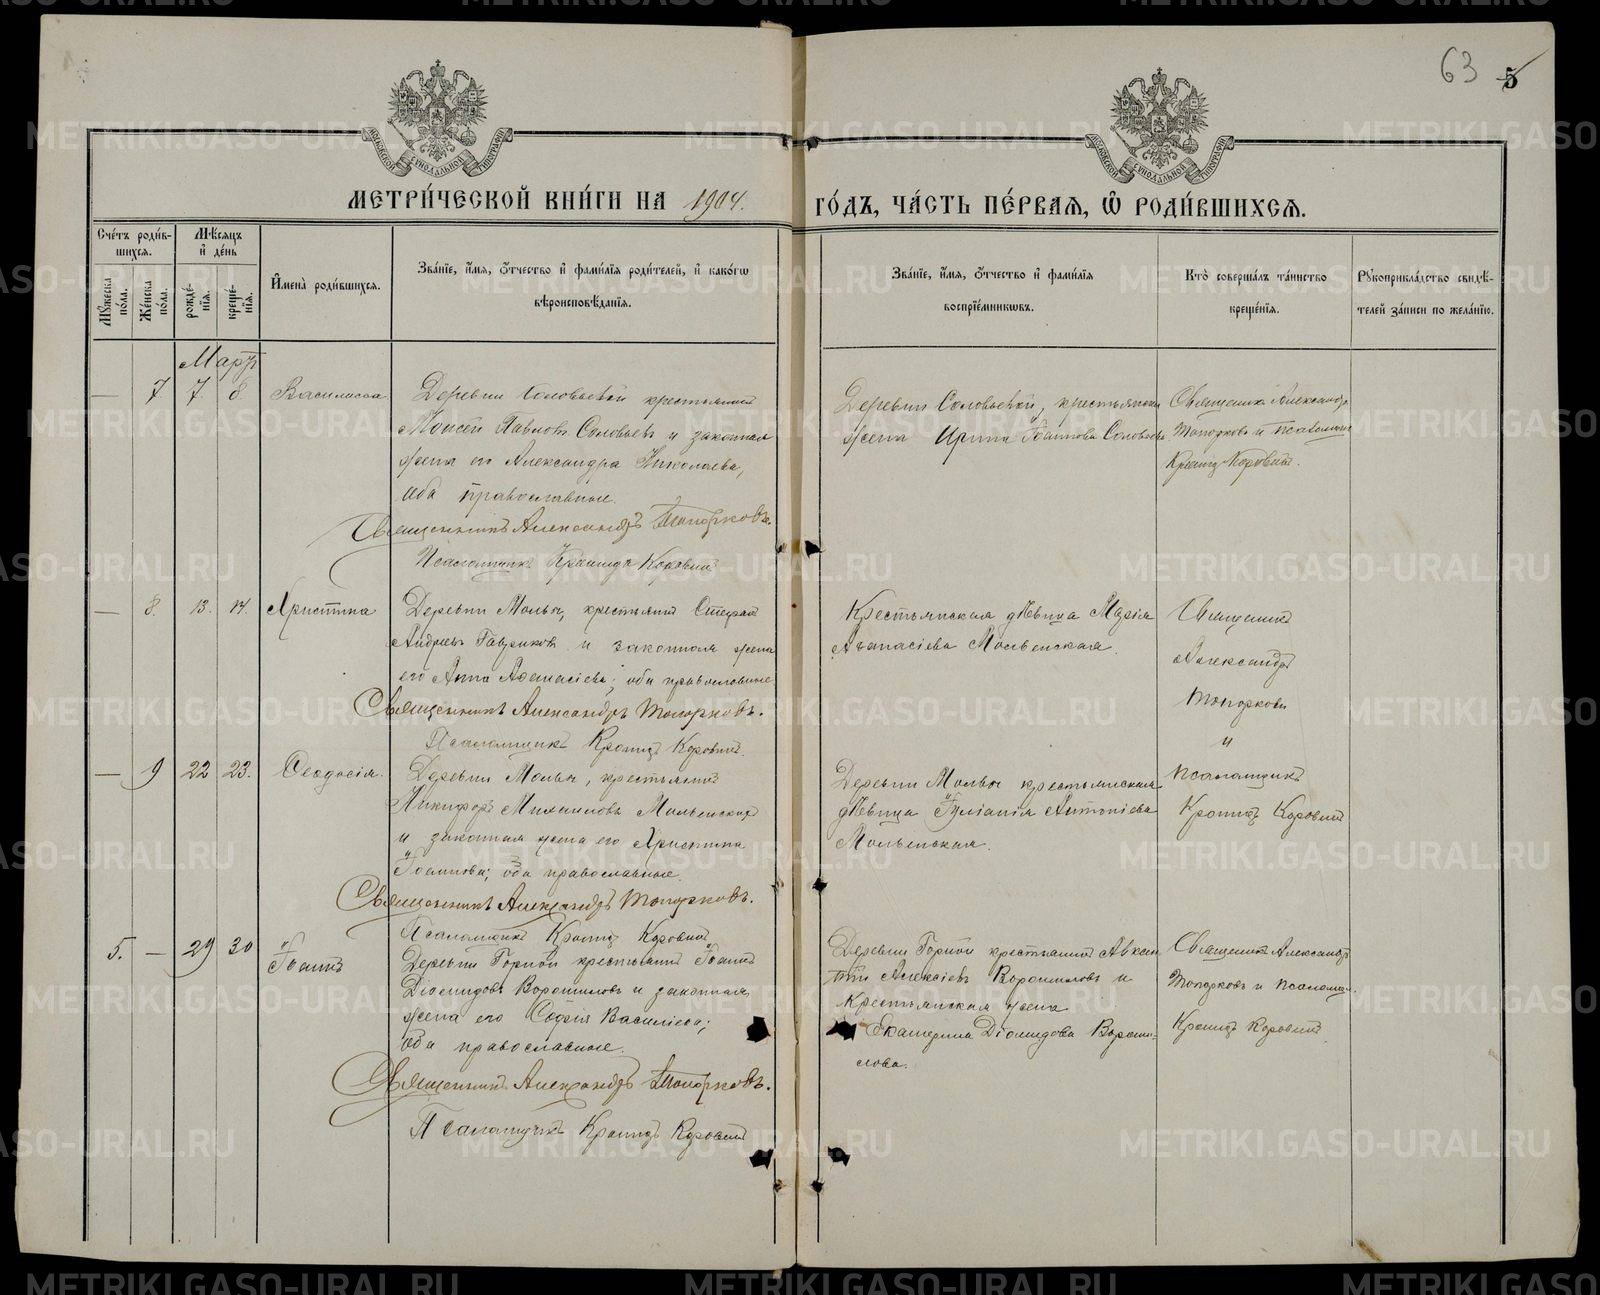 63 5
МЕТРИ́ЧЕСКОЙ КНИ́ГИ НА 1904. ГО́ДЪ, ЧА́СТЬ ПЕ́РВАЯ, Ѡ҆ РОДИ́ВШИХСЯ.
МОСКОВСКОЙ СѴНОДАЛЬНОЙ ТИПОГРАФІИ
МОСКОВСКОЙ СѴНОДАЛЬНОЙ ТИПОГРАФІИ
Сче́тъ роди́в-
шихся.
Мѣ́сяцъ
и҆ де́нь
Мꙋ́жеска
по́ла.
Же́нска
по́ла.
рожде́-
нїя.
креще́-
нїя.
И҆мена̀ роди́вшихся.
Зва́нїе, и҆́мя, ѻ҆́тчество и҆ фами́лїя роди́телей, и҆ како́гѡ
вѣроисповѣ́данїя.
Зва́нїе, и҆́мя, ѻ҆́тчество и҆ фами́лїя
воспрїе́мникѡвъ.
Кто̀ соверша́лъ та́инство
креще́нїя.
Рꙋкоприкла́дство свидѣ́-
телей за́писи по жела́нїю.
Мартъ
— 7 7. 8. Василисса
Деревни Соловьевой крестьянинъ
Моисей Павловъ Соловьевъ и законная
жена его Александра Николаева,
оба православные.
Священникъ Александръ Топорковъ.
Псаломщикъ Кронидъ Коровинъ
Деревни Соловьевой, крестьянская
жена Ирина Іоаннова Соловьева
Священникъ Александръ
Топорковъ и псаломщикъ
Кронидъ Коровинъ.
— 8. 13. 14. Христина
Деревни Мольы, крестьянинъ Стефанъ
Андреевъ Гавриковъ и законная жена
его Анна Аѳанасіева; оба православные
Священникъ Александръ Топорковъ.
Псаломщикъ Кронидъ Коровинъ.
Крестьянская дѣвица Марія
Аѳанасіева Мольенская.
Священникъ
Александръ
Топорковъ
и
псаломщикъ
Кронидъ Коровинъ
— 9 22 23. Ѳеодосія.
Деревни Мольы, крестьянинъ
Никифоръ Михаиловъ Мольенскихъ
и законная жена его Христина
Іоаннова; оба православные.
Священникъ Александръ Топорковъ.
Псаломщикъ Кронидъ Коровинъ
Деревни Мольы крестьянская
дѣвица Іуліанія Антоніева
Мольенская.
5. — 29 30 Іоаннъ
Деревни Горной крестьянинъ Іоаннъ
Діомидовъ Ворошиловъ и законная
жена его Софія Василіева;
Оба православные.
Священникъ Александръ Топорковъ.
Псаломщикъ Кронидъ Коровинъ
Деревни Горной крестьянинъ Авксен-
тій Алексіевъ Ворошиловъ и
крестьянская жена
Екатерина Діомидова Вороши-
лова.
Священникъ Александръ
Топорковъ и псаломщ.
Кронидъ Коровинъ
METRIKI.GASO-URAL.RU